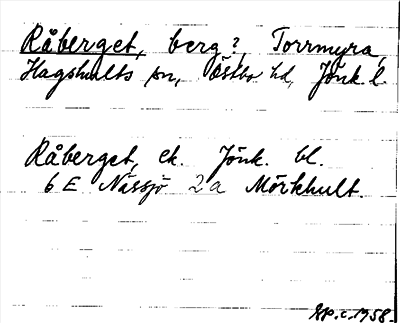 Råberget, berg?, Torrmyra,
Hagshults sn, Östbo hd, Jönk. l.
Råberget, ek. Jönk. bl.
6 E Nässjö 2a Mörkhult.
c. 1958.